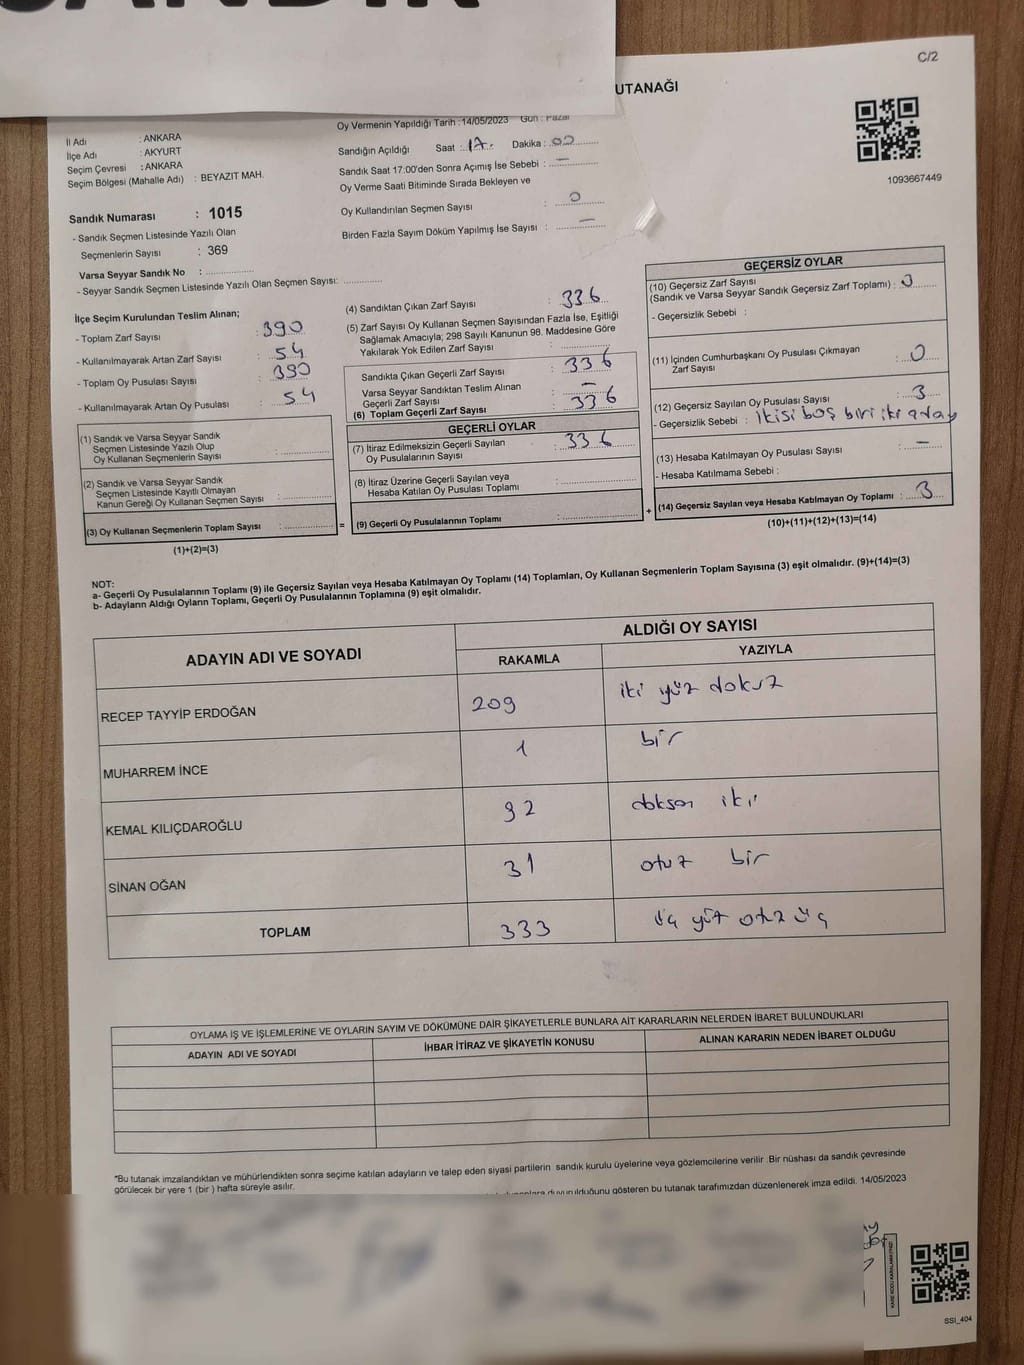 SANDIK
UTANAĞI
C/2
İl Adı : ANKARA
İlçe Adı : AKYURT
Seçim Çevresi : ANKARA
Seçim Bölgesi (Mahalle Adı) : BEYAZIT MAH.
Sandık Numarası : 1015
- Sandık Seçmen Listesinde Yazılı Olan
Seçmenlerin Sayısı : 369
Varsa Seyyar Sandık No :
- Seyyar Sandık Seçmen Listesinde Yazılı Olan Seçmen Sayısı:
Oy Vermenin Yapıldığı Tarih : 14/05/2023 Gün : Pazar
Sandığın Açıldığı Saat : 17. Dakika : 00
Sandık Saat 17:00'den Sonra Açımış İse Sebebi : —
Oy Verme Saati Bitiminde Sırada Bekleyen ve
Oy Kullandırılan Seçmen Sayısı : 0
Birden Fazla Sayım Döküm Yapılmış İse Sayısı : —
1093667449
İlçe Seçim Kurulundan Teslim Alınan;
- Toplam Zarf Sayısı : 390
- Kullanılmayarak Artan Zarf Sayısı : 54
- Toplam Oy Pusulası Sayısı : 390
- Kullanılmayarak Artan Oy Pusulası : 54
(1) Sandık ve Varsa Seyyar Sandık
Seçmen Listesinde Yazılı Olup
Oy Kullanan Seçmenlerin Sayısı :
(2) Sandık ve Varsa Seyyar Sandık
Seçmen Listesinde Kayıtlı Olmayan
Kanun Gereği Oy Kullanan Seçmen Sayısı :
(3) Oy Kullanan Seçmenlerin Toplam Sayısı : =
(1)+(2)=(3)
(4) Sandıktan Çıkan Zarf Sayısı : 336
(5) Zarf Sayısı Oy Kullanan Seçmen Sayısından Fazla İse, Eşitliği
Sağlamak Amacıyla; 298 Sayılı Kanunun 98. Maddesine Göre
Yakılarak Yok Edilen Zarf Sayısı :
Sandıkta Çıkan Geçerli Zarf Sayısı : 336
Varsa Seyyar Sandıktan Teslim Alınan
Geçerli Zarf Sayısı : —
(6) Toplam Geçerli Zarf Sayısı : 336
GEÇERLİ OYLAR
(7) İtiraz Edilmeksizin Geçerli Sayılan : 336
Oy Pusulalarının Sayısı
(8) İtiraz Üzerine Geçerli Sayılan veya
Hesaba Katılan Oy Pusulası Toplamı :
(9) Geçerli Oy Pusulalarının Toplamı : +
GEÇERSİZ OYLAR
(10) Geçersiz Zarf Sayısı
(Sandık ve Varsa Seyyar Sandık Geçersiz Zarf Toplamı) : 0
- Geçersizlik Sebebi :
(11) İçinden Cumhurbaşkanı Oy Pusulası Çıkmayan
Zarf Sayısı : 0
(12) Geçersiz Sayılan Oy Pusulası Sayısı : 3
- Geçersizlik Sebebi : ikisi boş biri iki aday
(13) Hesaba Katılmayan Oy Pusulası Sayısı : —
- Hesaba Katılmama Sebebi :
(14) Geçersiz Sayılan veya Hesaba Katılmayan Oy Toplamı : 3
(10)+(11)+(12)+(13)=(14)
NOT:
a- Geçerli Oy Pusulalarının Toplamı (9) ile Geçersiz Sayılan veya Hesaba Katılmayan Oy Toplamı (14) Toplamları, Oy Kullanan Seçmenlerin Toplam Sayısına (3) eşit olmalıdır. (9)+(14)=(3)
b- Adayların Aldığı Oyların Toplamı, Geçerli Oy Pusulalarının Toplamına (9) eşit olmalıdır.
ADAYIN ADI VE SOYADI ALDIĞI OY SAYISI
RAKAMLA YAZIYLA
RECEP TAYYİP ERDOĞAN 209 iki yüz dokuz
MUHARREM İNCE 1 bir
KEMAL KILIÇDAROĞLU 92 doksan iki
SİNAN OĞAN 31 otuz bir
TOPLAM 333 üç yüz otuz üç
OYLAMA İŞ VE İŞLEMLERİNE VE OYLARIN SAYIM VE DÖKÜMÜNE DAİR ŞİKAYETLERLE BUNLARA AİT KARARLARIN NELERDEN İBARET BULUNDUKLARI
ADAYIN ADI VE SOYADI İHBAR İTİRAZ VE ŞİKAYETİN KONUSU ALINAN KARARIN NEDEN İBARET OLDUĞU
*Bu tutanak imzalandıktan ve mühürlendikten sonra seçime katılan adayların ve talep eden siyasi partilerin sandık kurulu üyelerine veya gözlemcilerine verilir .Bir nüshası da sandık çevresinde
görülecek bir yere 1 (bir ) hafta süreyle asılır.
duyurulduğunu gösteren bu tutanak tarafımızdan düzenlenerek imza edildi. 14/05/2023
SSI_404